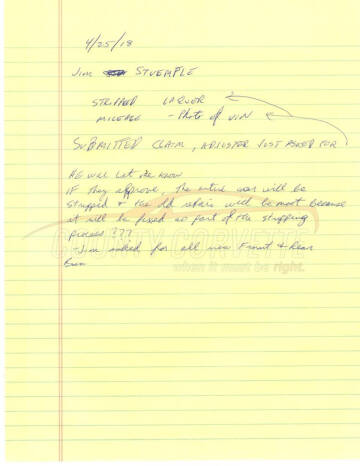 4/25/18
Jim STUEMPLE
STRIPPED LAQUER
MILEAGE - Photo of VIN
SUBMITTED CLAIM, ADJUSTER JUST ASKED FOR
HE will let me know
IF they approve, the entire car will be
stripped & the old repairs will be moot because
it will be fixed as part of the stripping
process ???
- Jim asked for all new Front & Rear
COUNTY CORVETTE
when it must be right.